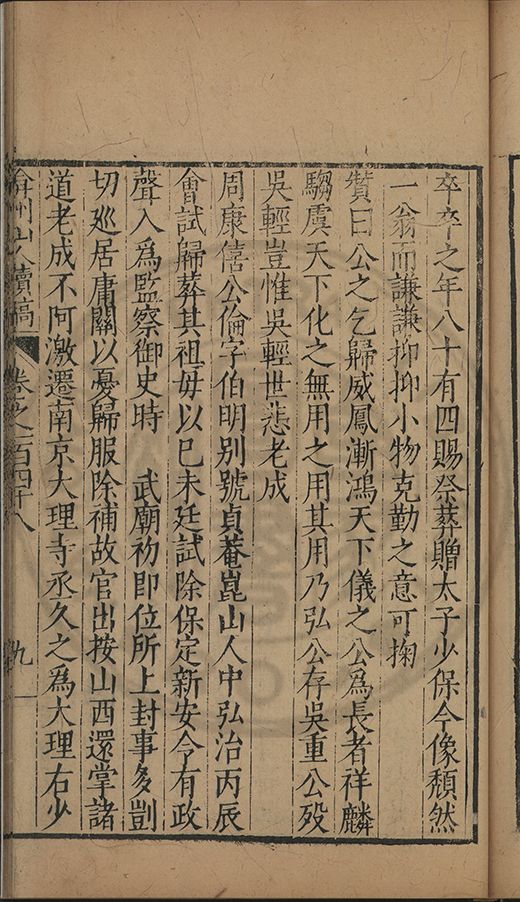 卒卒之年八十有四賜祭葬贈太子少保今像頽然
一翁而謙謙抑抑小物克勤之意可掬
贊曰公之乞歸威鳳漸鴻天下儀之公爲長者祥麟
騶虞天下化之無用之用其用乃弘公存吳重公殁
吳輕豈惟吳輕世悲老成
周康僖公倫字伯明别號貞菴崑山人中弘治丙辰
會試歸葬其祖母以巳未廷試除保定新安令有政
聲入爲監察御史時　武廟初即位所上封事多剴
切廵居庸關以憂歸服除補故官出按山西還掌諸
道老成不阿激遷南京大理寺丞久之爲大理右少
弇州山人續稿　卷之一百四十八　九